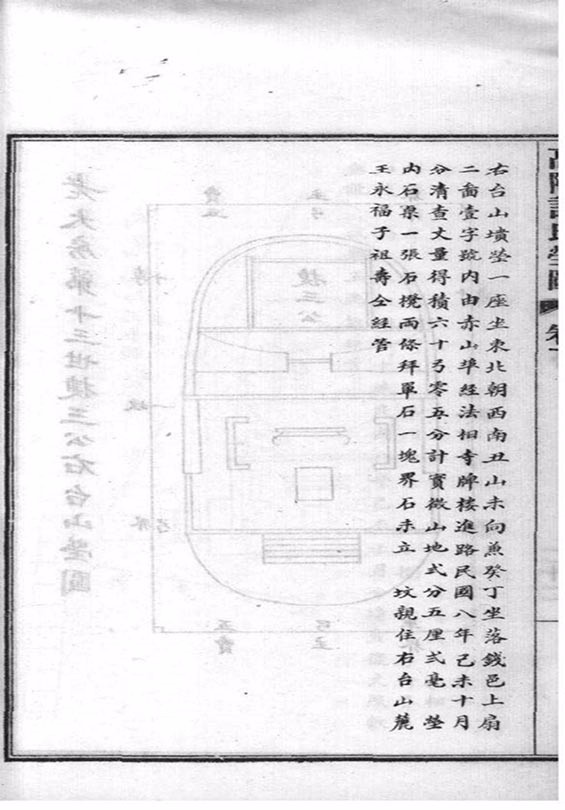 右台山墳塋一座坐東北朝西南丑山未向兼癸丁坐落錢邑上扇
二啚壹字號內由赤山埠經法相寺牌樓進路民國八年己未十月
分清查丈量得積六十弓零五分計實徵山地弍分五厘弍毫塋
內石桌一張石櫈兩條拜單石一塊界石未立 坟親住右台山麓
王永福子祖壽仝經管
老大房第十三世捷三公右台山塋圖
捷三公